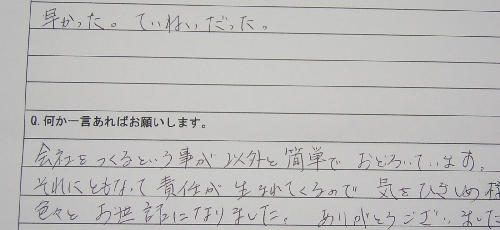 早かった。ていねいだった。
Q.何か一言あればお願いします。
会社をつくるという事が以外と簡単でおどろいています。
それにともなって責任が生まれてくるので気をひきしめ様
色々とお世話になりました。ありがとうございました